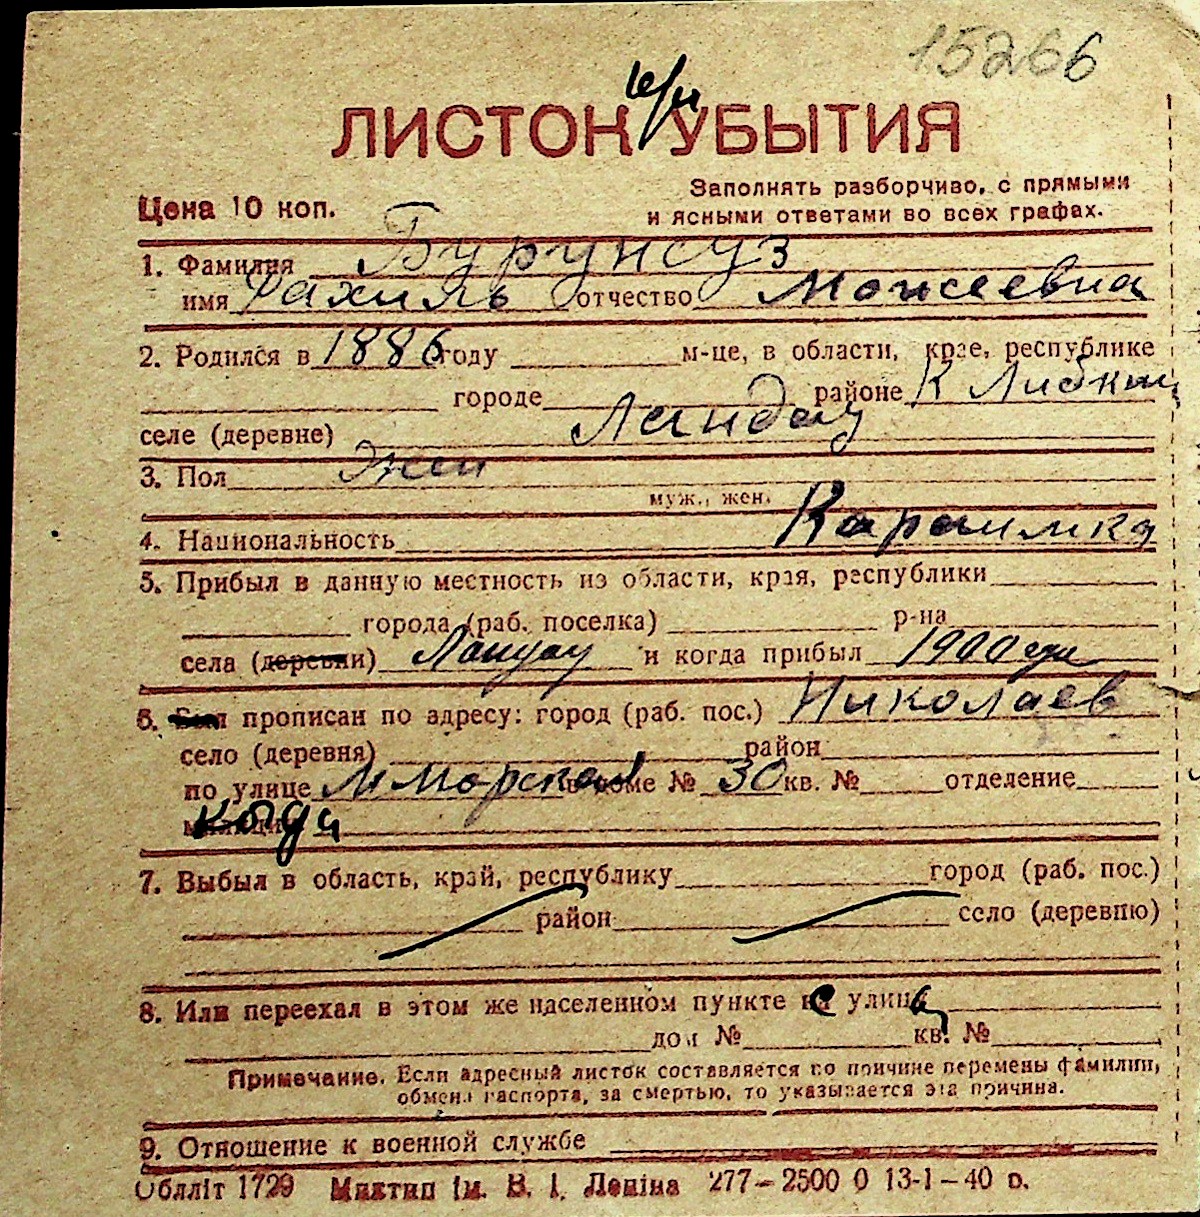 15266
ЛИСТОК УБЫТИЯ
Заполнять разборчиво, с прямыми
Цена 10 коп.
и ясными ответами во всех графах.
1. Фамилия Бурунсуз
имя Рахиль отчествоМожсеевна
2. Родился в 1886 году м-це, в области, крае, республике
городе районе К Либкнт
селе (деревне) Ландау
3. Пол жен
муж., жен.
4. Национальность Караимка
5. Прибыл в данную местность из области, края, республики
города (раб. поселка) р-на
села (деревни) Ландау и когда прибыл 1900
6. прописан по адресу: город (раб. пос.) Николаев
село (деревня) район
по улице М Морская доме № 30 кв. № отделение
когда
7. Выбыл в область, край, республику город (раб. пос.)
район село (деревню)
8. Или переехал в этом же населенном пункте с улицы
дом № кв. №
Примечание. Если адресный листок составляется по причине перемены фамилии,
обмена паспорта, за смертью, то указывается эта причина.
9. Отношение к военной службе
Обліт 1729 Миктип ім. В. І. Леніна 277-2500 0 13-1-40 р.